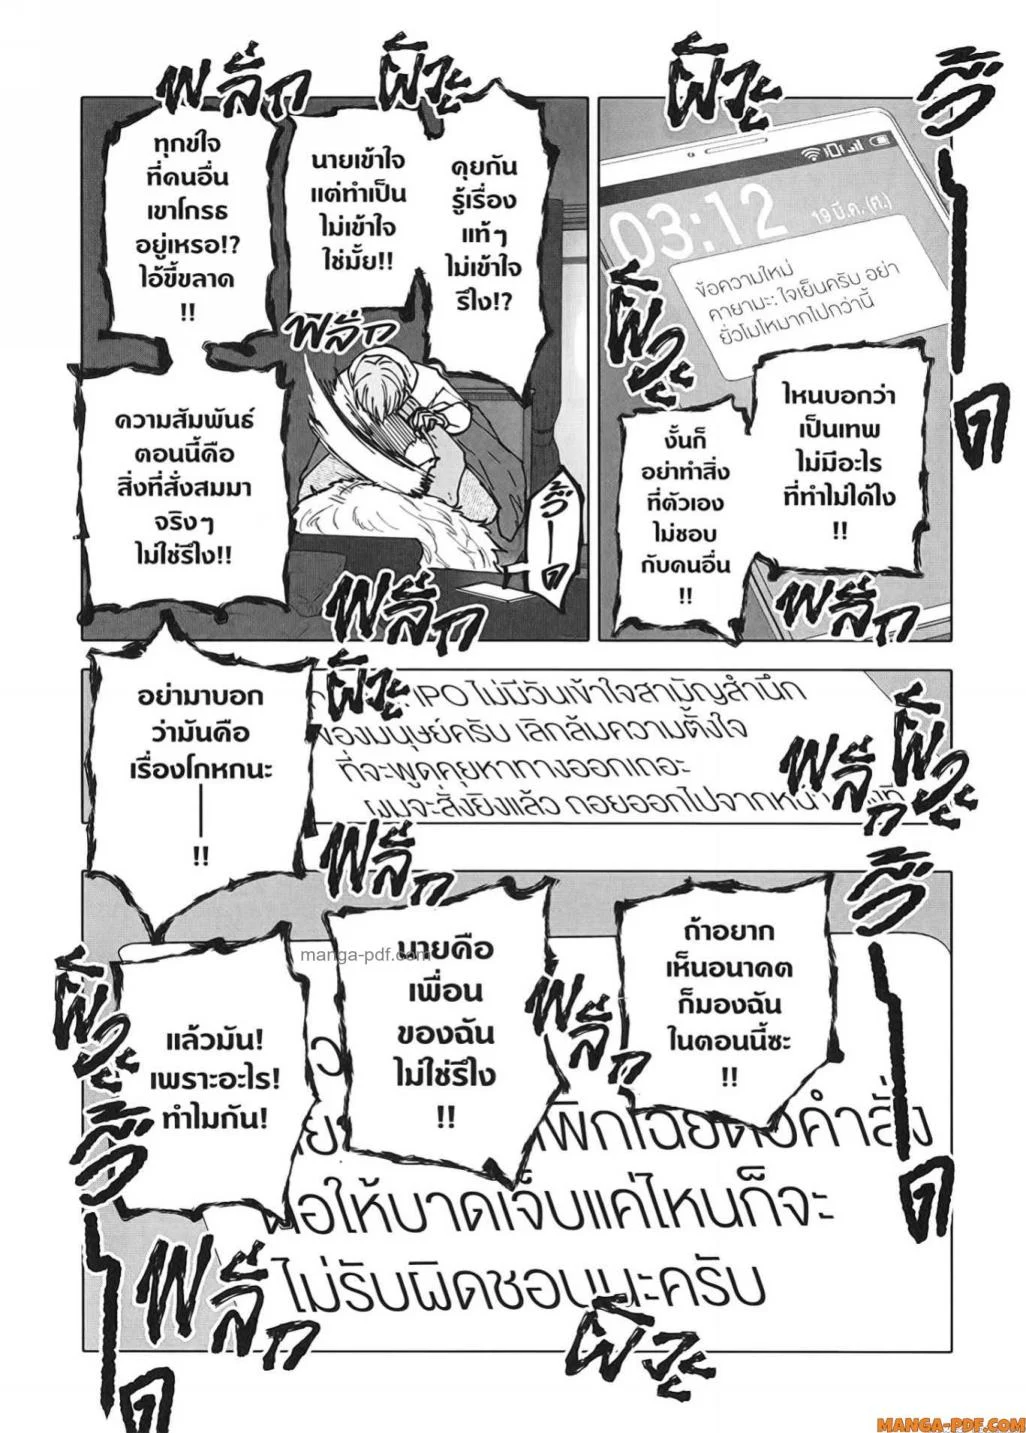 ผิวะ
วี้
ด
03:12
19 มี.ค. (ศ.)
ข้อความใหม่
คายามะ: ใจเย็นครับ อย่า
ยั่วโมโหมากไปกว่านี้
ไหนบอกว่า
เป็นเทพ
ไม่มีอะไร
ที่ทำไม่ได้ไง
!!
ผิวะ
งั้นก็
อย่าทำสิ่ง
ที่ตัวเอง
ไม่ชอบ
กับคนอื่น
!!
พลึ่ก
ผิวะ
พลึ่ก
คุยกัน
รู้เรื่อง
แท้ๆ
ไม่เข้าใจ
รึไง!?
นายเข้าใจ
แต่ทำเป็น
ไม่เข้าใจ
ใช่มั้ย!!
ทุกข์ใจ
ที่คนอื่น
เขาโกรธ
อยู่เหรอ!?
ไอ้ขี้ขลาด
!!
ฟลึ่ก
ความสัมพันธ์
ตอนนี้คือ
สิ่งที่สั่งสมมา
จริงๆ
ไม่ใช่รึไง!!
วี้ด
พลึ่ก
ผิวะ
IPO ไม่มีวันเข้าใจสามัญสำนึก
ของมนุษย์ครับ เลิกล้มความตั้งใจ
ที่จะพูดคุยหาทางออกเถอะ
ผมจะสั่งยิงแล้ว ถอยออกไปจากหน้า
ผิวะ
พลึ่ก
อย่ามาบอก
ว่ามันคือ
เรื่องโกหกนะ
!!
พลึ่ก
วี้
ด
ถ้าอยาก
เห็นอนาคต
ก็มองฉัน
ในตอนนี้ซะ
!!
พลึ่ก
นายคือ
เพื่อน
ของฉัน
ไม่ใช่รึไง
!!
manga-pdf.com
ผิวะ
แล้วมัน!
เพราะอะไร!
ทำไมกัน!
วี้
ด
พิกเฉยต่อคำสั่ง
ต่อให้บาดเจ็บแค่ไหนก็จะ
ไม่รับผิดชอบนะครับ
พลึ่ก
ผิวะ
MANGA-PDF.COM